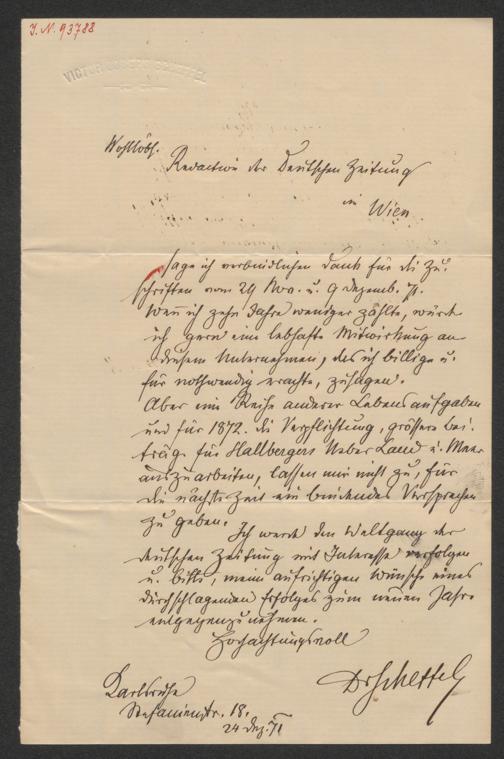 I. N. 93788
VICTOR JOSEPH SCHEFFEL
Wohllöbl.
Redaction der Deutschen Zeitung
in Wien
sage ich verbindlichen Dank für die Zu-
schriften vom 24 Nov. u. 9 Dezemb. 71.
Wenn ich zehn Jahre weniger zählte, würde
ich gern eine lebhafte Mitwirkung an
diesem Unternehmen, das ich billige u.
für nothwendig erachte, zusagen.
Aber eine Reihe anderer Lebensaufgaben
und für 1872. die Verpflichtung, grössere Bei-
träge für Hallbergers Ueber Land u. Meer
auszuarbeiten, lassen mir nicht zu, für
die nächste Zeit ein bindendes Versprechen
zu geben.
Ich werde den Weltgang der
deutschen Zeitung mit Interesse verfolgen
u. bitte, meine aufrichtigen Wünsche eines
durchschlagenden Erfolges zum neuen Jahre
entgegenzunehmen.
Hochachtungsvoll
Dr Scheffel
Karlsruhe
Stefanienstr. 18.
24 Dez. 71